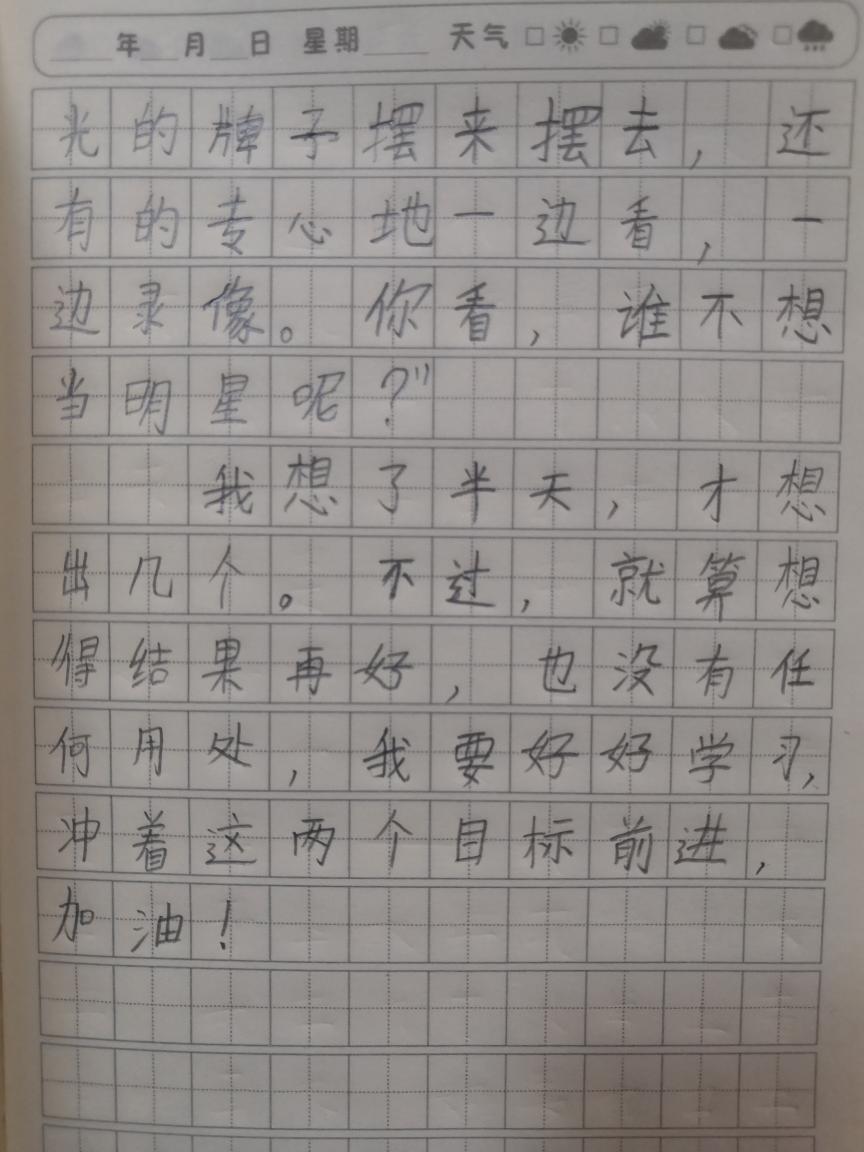 年 月 日 星期 天气
光的牌子摆来摆去，还
有的专心地一边看，一
边录像。你看，谁不想
当明星呢？”
我想了半天，才想
出几个。不过，就算想
得结果再好，也没有任
何用处，我要好好学习，
冲着这两个目标前进，
加油！